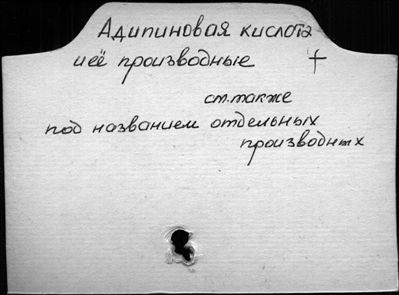 Адипиновая кислота
и её производные +
см. также
под названием отдельных
производных